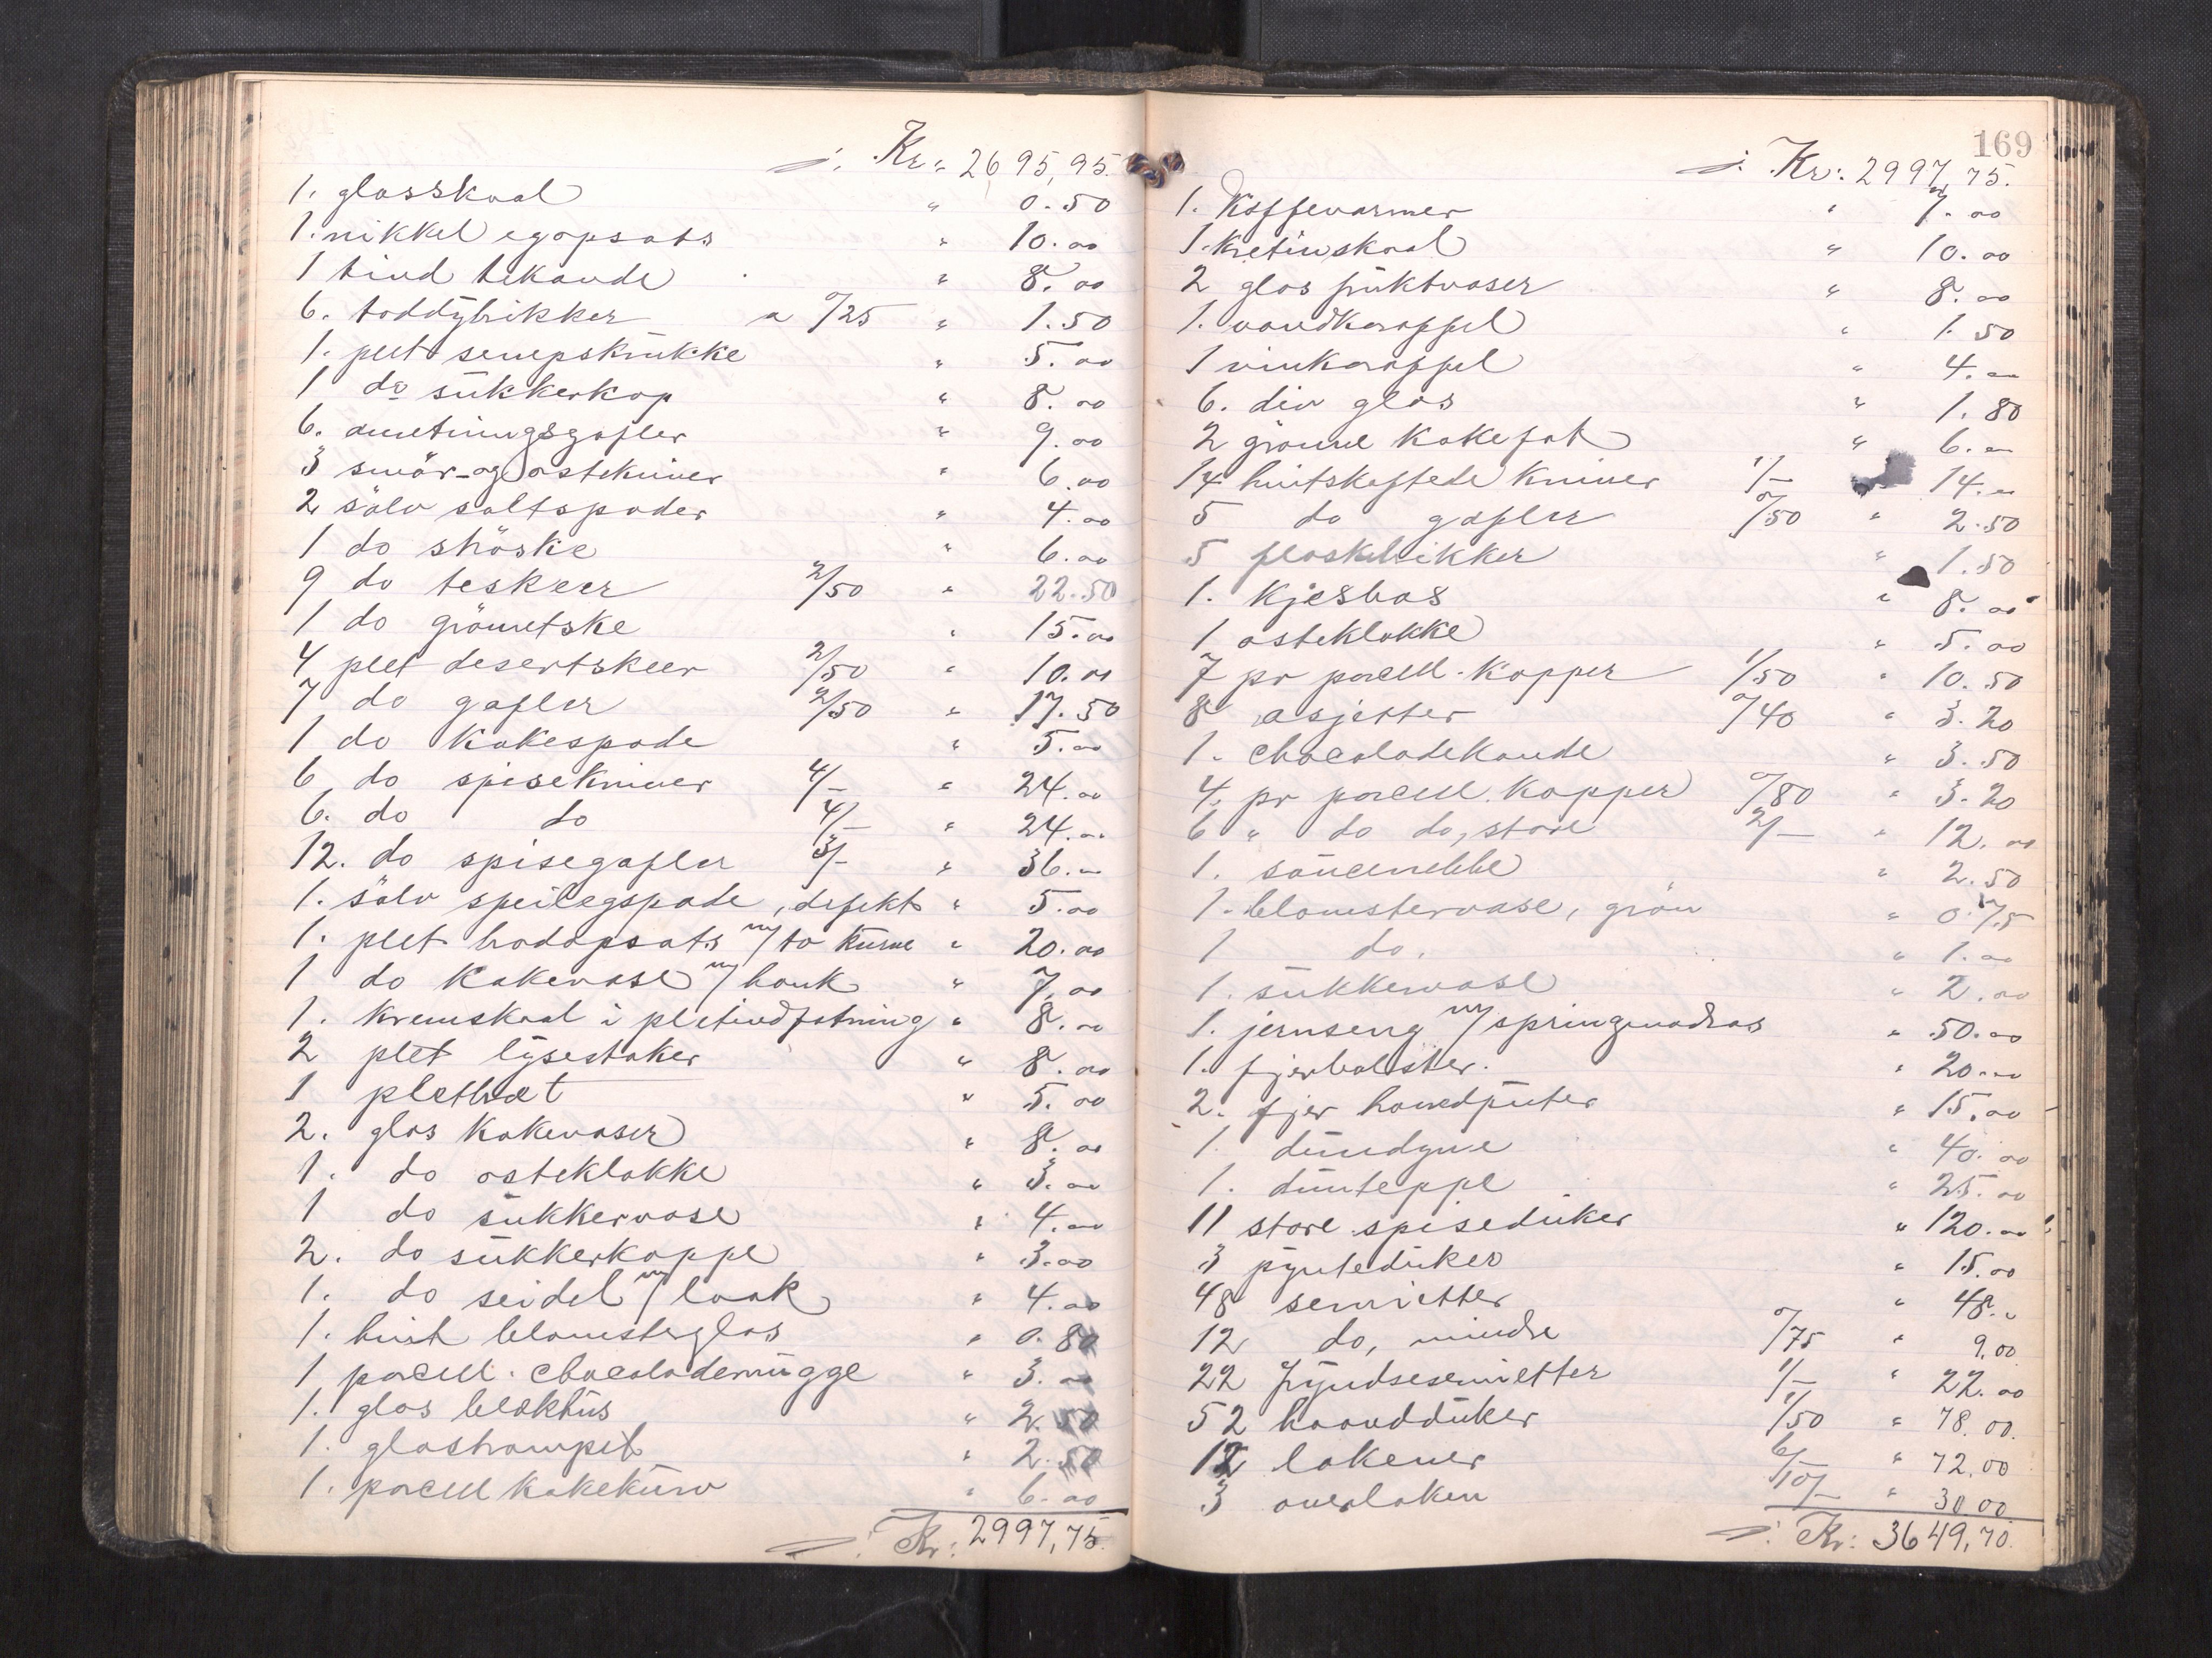 Kr. 2695,95.
1. glasskaal " 0.50
1. nikkel egopsats " 10.00
1 tind tekande " 8.00
6. toddybrikker a 0/25 " 1.50
1. plet senepskrukke " 5.00
1 do sukkerkop " 8.00
6. anretningsgafler " 9.00
3 smör- og ostekniver " 6.00
2 sölv saltspader " 4.00
1 do ströske " 6.00
9 do teskeer 2/50 " 22.50
1 do grömetske " 15.00
4 plet desertskeer 2/50 " 10.00
7 do gafler 2/50 " 17.50
1 do kakespade " 5.00
6 do spisekniver 4/- " 24.00
6. do do 4/- " 24.00
12. do spisegafler 3/- " 36.00
1. sölv speilegspade, defekt " 5.00
1. plet bodopsats m/ to kurve " 20.00
1 do kakevase m/ hank " 7.00
1. kremskaal i pletindfatning " 8.00
2 plet lysestaker " 8.00
1 pletbræt " 5.00
2. glas kakevaser " 8.00
1. do osteklokke " 3.00
1 do sukkervase " 4.00
2. do sukkerkoppe " 3.00
1. do seidel m/ laak " 4.00
1. hvit blomsterglas " 0.80
1 porcell. chocolademugge " 3.00
1. glas blækhus " 2.50
1. glastrompet " 2.50
1. porcell kakekurv " 6.00
Kr: 2997,75.
169
Kr: 2997,75.
1. Kaffevarmer " 7.00
1. Kretinskaal " 10.00
2 glas fruktvaser " 8.00
1. vandkaraffel " 1.50
1 vinkaraffel " 4.00
6. div glas " 1.80
2 grönne kakefat " 6.00
14 hvitskaftede kniver 1/- 14.00
5 do gafler 0/50 " 2.50
5 flaskebrikker " 1.50
1. Kjesbas " 8.00
1 osteklokke " 5.00
7 pr porcell. Kopper 1/50 " 10.50
8 asjetter 0/40 " 3.20
1. chocoladekande " 3.50
4. pr porcell. Kopper 0/80 " 3.20
6 " do do, store 2/- " 12.00
1. saucenebbe " 2.50
1. blomstervase, grön " 0.75
1 do. " 1.00
1. sukkervase " 2.00
1. jernseng m/ springmadras " 50.00
1. fjerbolster. " 20.00
2. fjer hovedputer " 15.00
1 dundyne " 40.00
1. dunteppe " 25.00
11 store spiseduker " 120.00
3 pynteduker " 15.00
48 servietter " 48.00
12 do, mindre 0/75 " 9.00
22 fryndseservietter 1/- " 22.00
52 haandduker 1/50 " 78.00.
12 lakener 6/- " 72.00
3 overlaken 10/- " 30.00.
Kr: 3649,70.